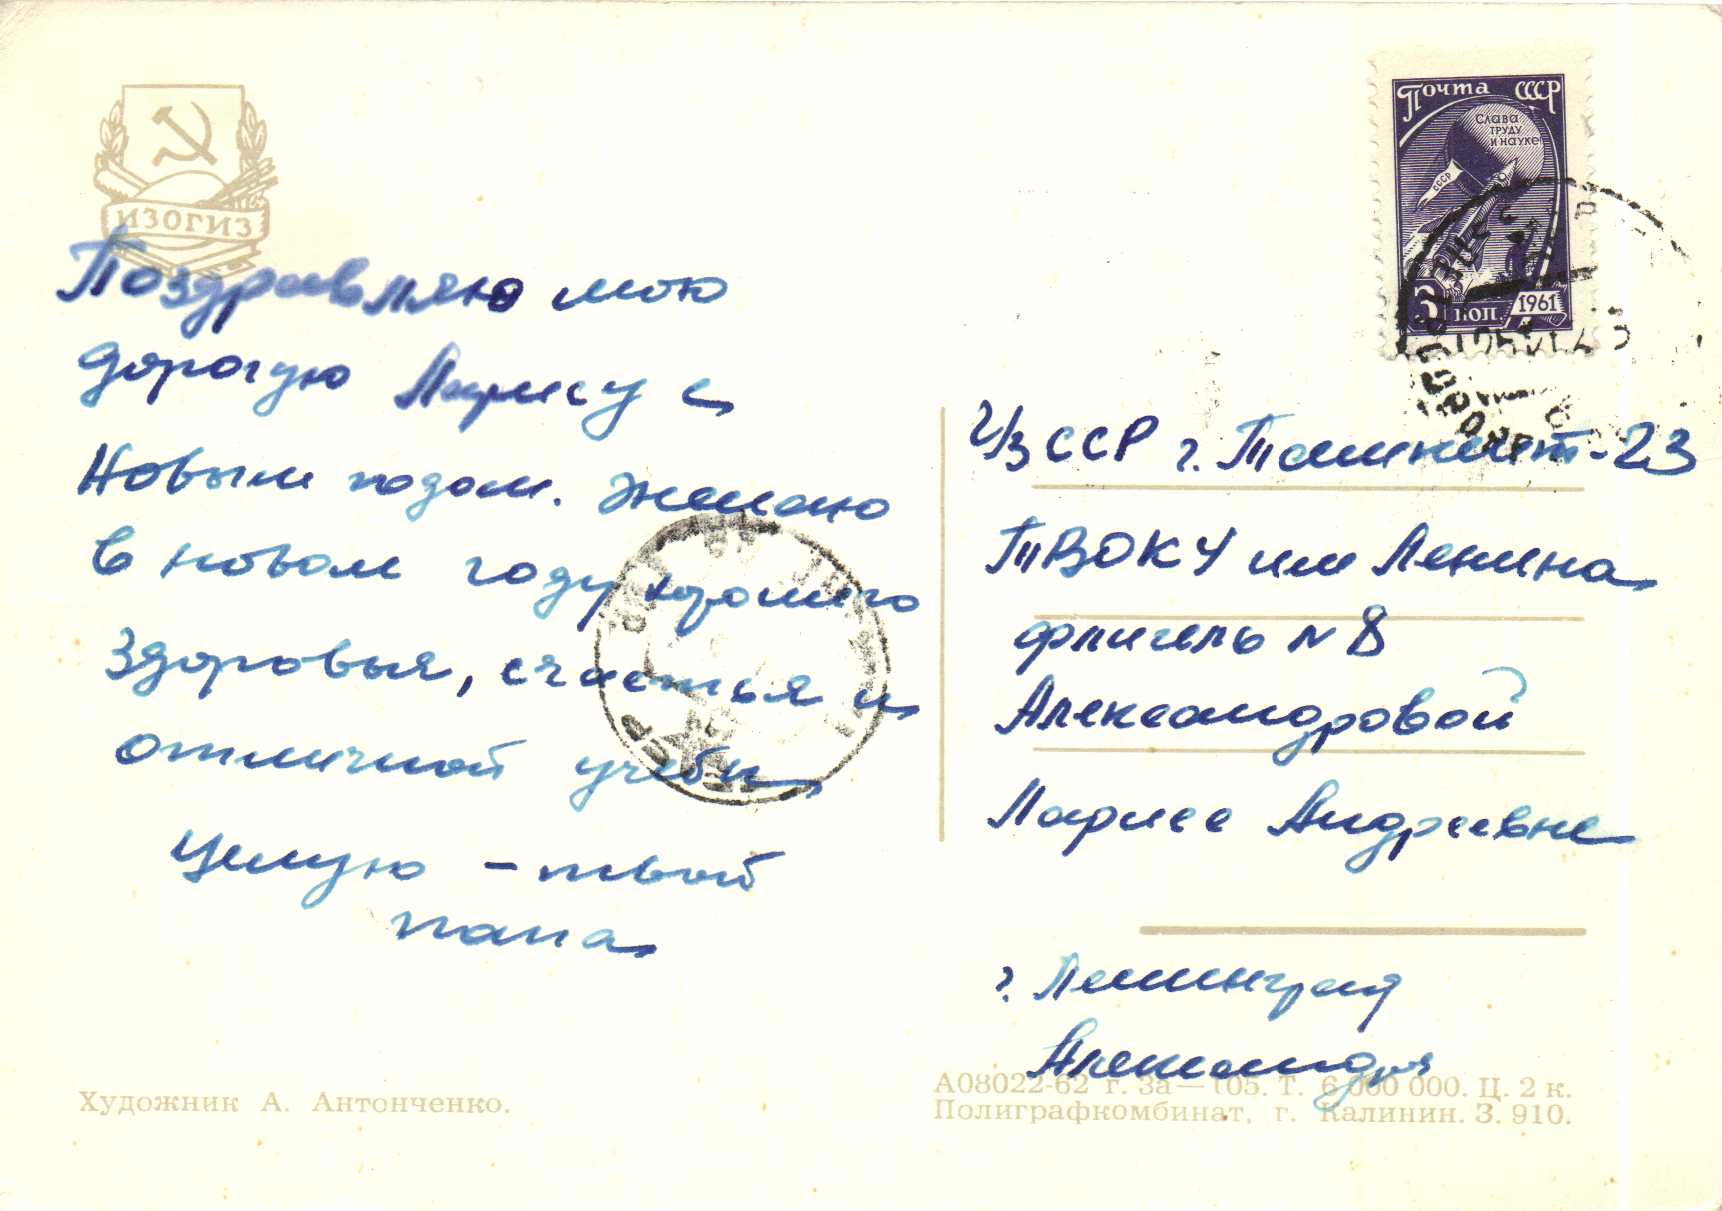 ИЗОГИЗ
Поздравляю мою
дорогую Ларису с
Новым годом. Желаю
в новом году хорошего
здоровья, счастья и
отличной учебы
Целую – твой
папа
Художник А. Антонченко.
Почта СССР
Слава
труду
и науке
СССР
6 коп. 1961
УзССР г. Ташкент-23
ТВОКУ им Ленина
флигель № 8
Александровой
Ларисе Андреевне
г. Ленинград
А08022-62 г. За— 105. Т. 6 000 000. Ц. 2 к.
Полиграфкомбинат, г. Калинин. З. 910.